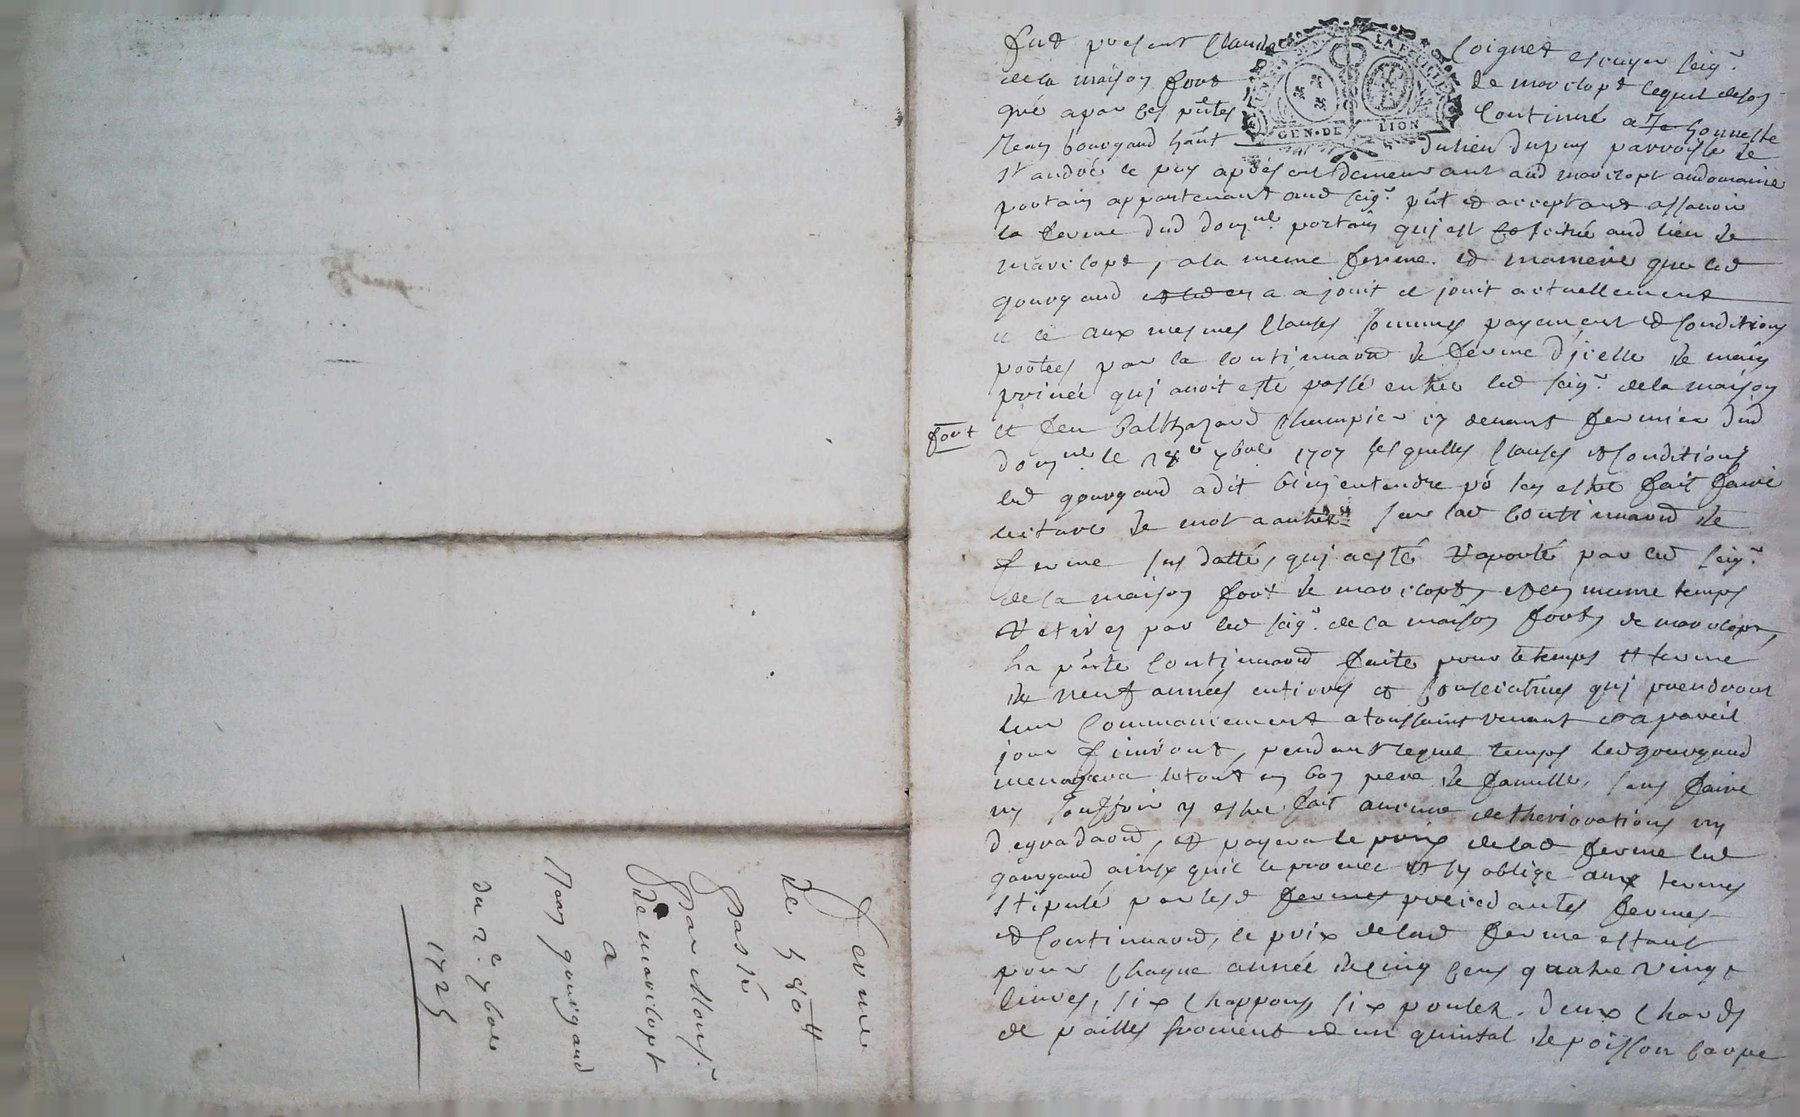 fut present Claude Coignet escuyer seigr
de la maison fort de marclopt lequel de son
gré a par ces pntes continué a honneste
Jean gourgaud hâut du lieu dupuy parroisse de
st andré le puy apvés et demeurant aud marclopt audomaine
portain appartenant aud seigr pnt et acceptant assavoir
la ferme dud domne portain qui est scitué aud lieu de
marclopt, a la meme forme et maniere que led
gourgaud a jouit et jouit actuellement
et ce aux mesmes clauses sommes payement et conditions
portées par la continuaon de ferme d'icelle de main
privée qui avoit esté passé entre led seigr de la maison
fort et feu Balthazard Champier cy devant fermier dud
domne le 28e 7bre 1707 lesquelles clauses et conditions
led gourgaud a dit bien entendre pr luy estre fait faire
lecture de mot a autre sur lad continuaon de
ferme sus datté, qui a esté raporté par led seigr
de la maison fort de marclopt, et en meme temps
retirez par led seigr de la maison fort de marclopt,
la pnte continuaon faite pour le temps et terme
de neuf années entieres et consecutives qui prendront
leur commancement a toussaint venant et a pareil
jour finiront, pendant lequel temps led gourgaud
menagera letout en bon pere de famille, sans faire
ny souffrir y estre fait aucune detheriorations ny
degradaon, et payera le prix de lad ferme led
gourgaud ainsy quil le promet et sy oblige aux termes
stipulé par lesd fermes precedantes fermes
et continuaon, le prix de lad ferme estant
pour chaque année de cinq cens quatre vingt
livres, six chappons, six poulet, deux chards
de pailles froment et un quintal de poisson carpe
GEN·DE LION
Ferme
de 580 ll
Passé
Par Monsr
De marclopt
a
Jean gourgaud
du 2e 7bre
1725